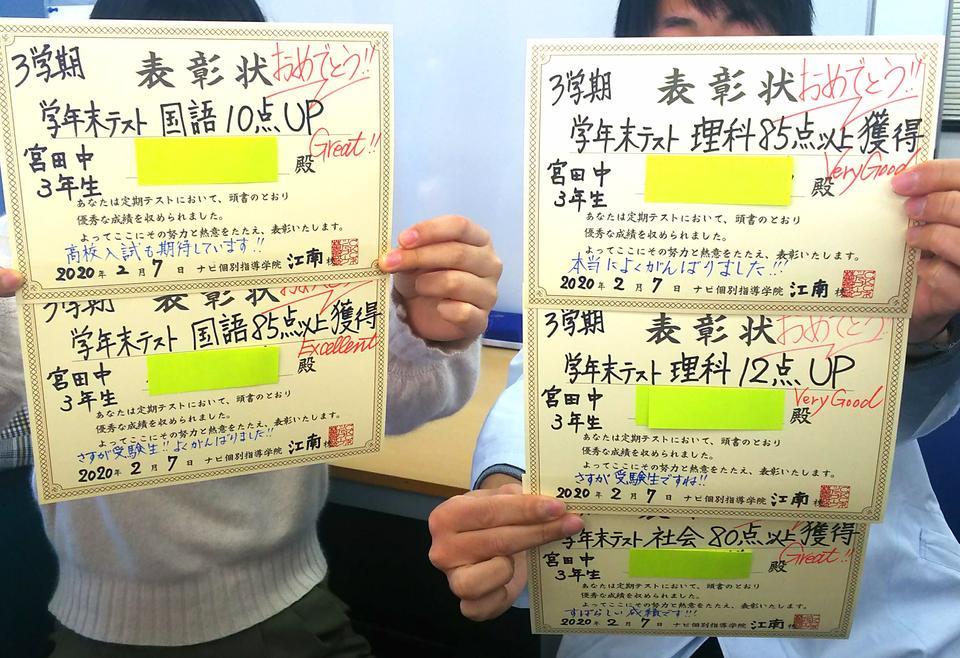 3学期
表彰状
おめでとう!!
学年末テスト 国語 10点UP
Great!!
宮田中
3年生
殿
あなたは定期テストにおいて、頭書のとおり
優秀な成績を収められました。
よってここにその努力と熱意をたたえ、表彰いたします。
高校入試も期待しています!!
2020年 2月 7日 ナビ個別指導学院 江南校
3学期
表彰状
学年末テスト 国語85点以上獲得
Excellent
宮田中
3年生
殿
あなたは定期テストにおいて、頭書のとおり
優秀な成績を収められました。
よってここにその努力と熱意をたたえ、表彰いたします。
さすが受験生!!よくがんばりました!!
2020年 2月 7日 ナビ個別指導学院 江南校
3学期
表彰状
おめでとう!!
学年末テスト 理科85点以上獲得
Very Good
宮田中
3年生
殿
あなたは定期テストにおいて、頭書のとおり
優秀な成績を収められました。
よってここにその努力と熱意をたたえ、表彰いたします。
本当によくがんばりました!!!
2020年 2月 7日 ナビ個別指導学院 江南校
3学期
表彰状
おめでとう
学年末テスト 理科 12点UP
Very Good
宮田中
3年生
殿
あなたは定期テストにおいて、頭書のとおり
優秀な成績を収められました。
よってここにその努力と熱意をたたえ、表彰いたします。
さすが受験生ですね!!
2020年 2月 7日 ナビ個別指導学院 江南校
学年末テスト 社会 80点以上獲得
Great!!
宮田中
3年生
殿
あなたは定期テストにおいて、頭書のとおり
優秀な成績を収められました。
よってここにその努力と熱意をたたえ、表彰いたします。
すばらしい成績です!!!
2020年 2月 7日 ナビ個別指導学院 江南校